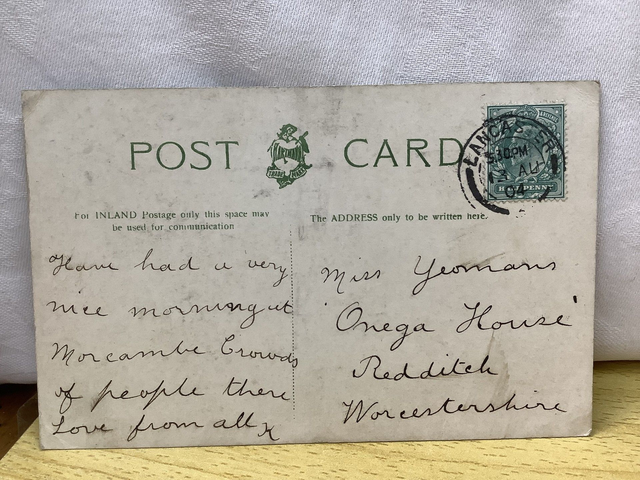 POST CARD
HARTMANN
TRADE MARK
LANCASTER
5.30PM
AU
04
HALFPENNY
For INLAND Postage only this space may
be used for communication
The ADDRESS only to be written here.
Have had a very
nice morning at
Morcambe Crowds
of people there
Love from all x
Miss Yeomans
'Onega House'
Redditch
Worcestershire